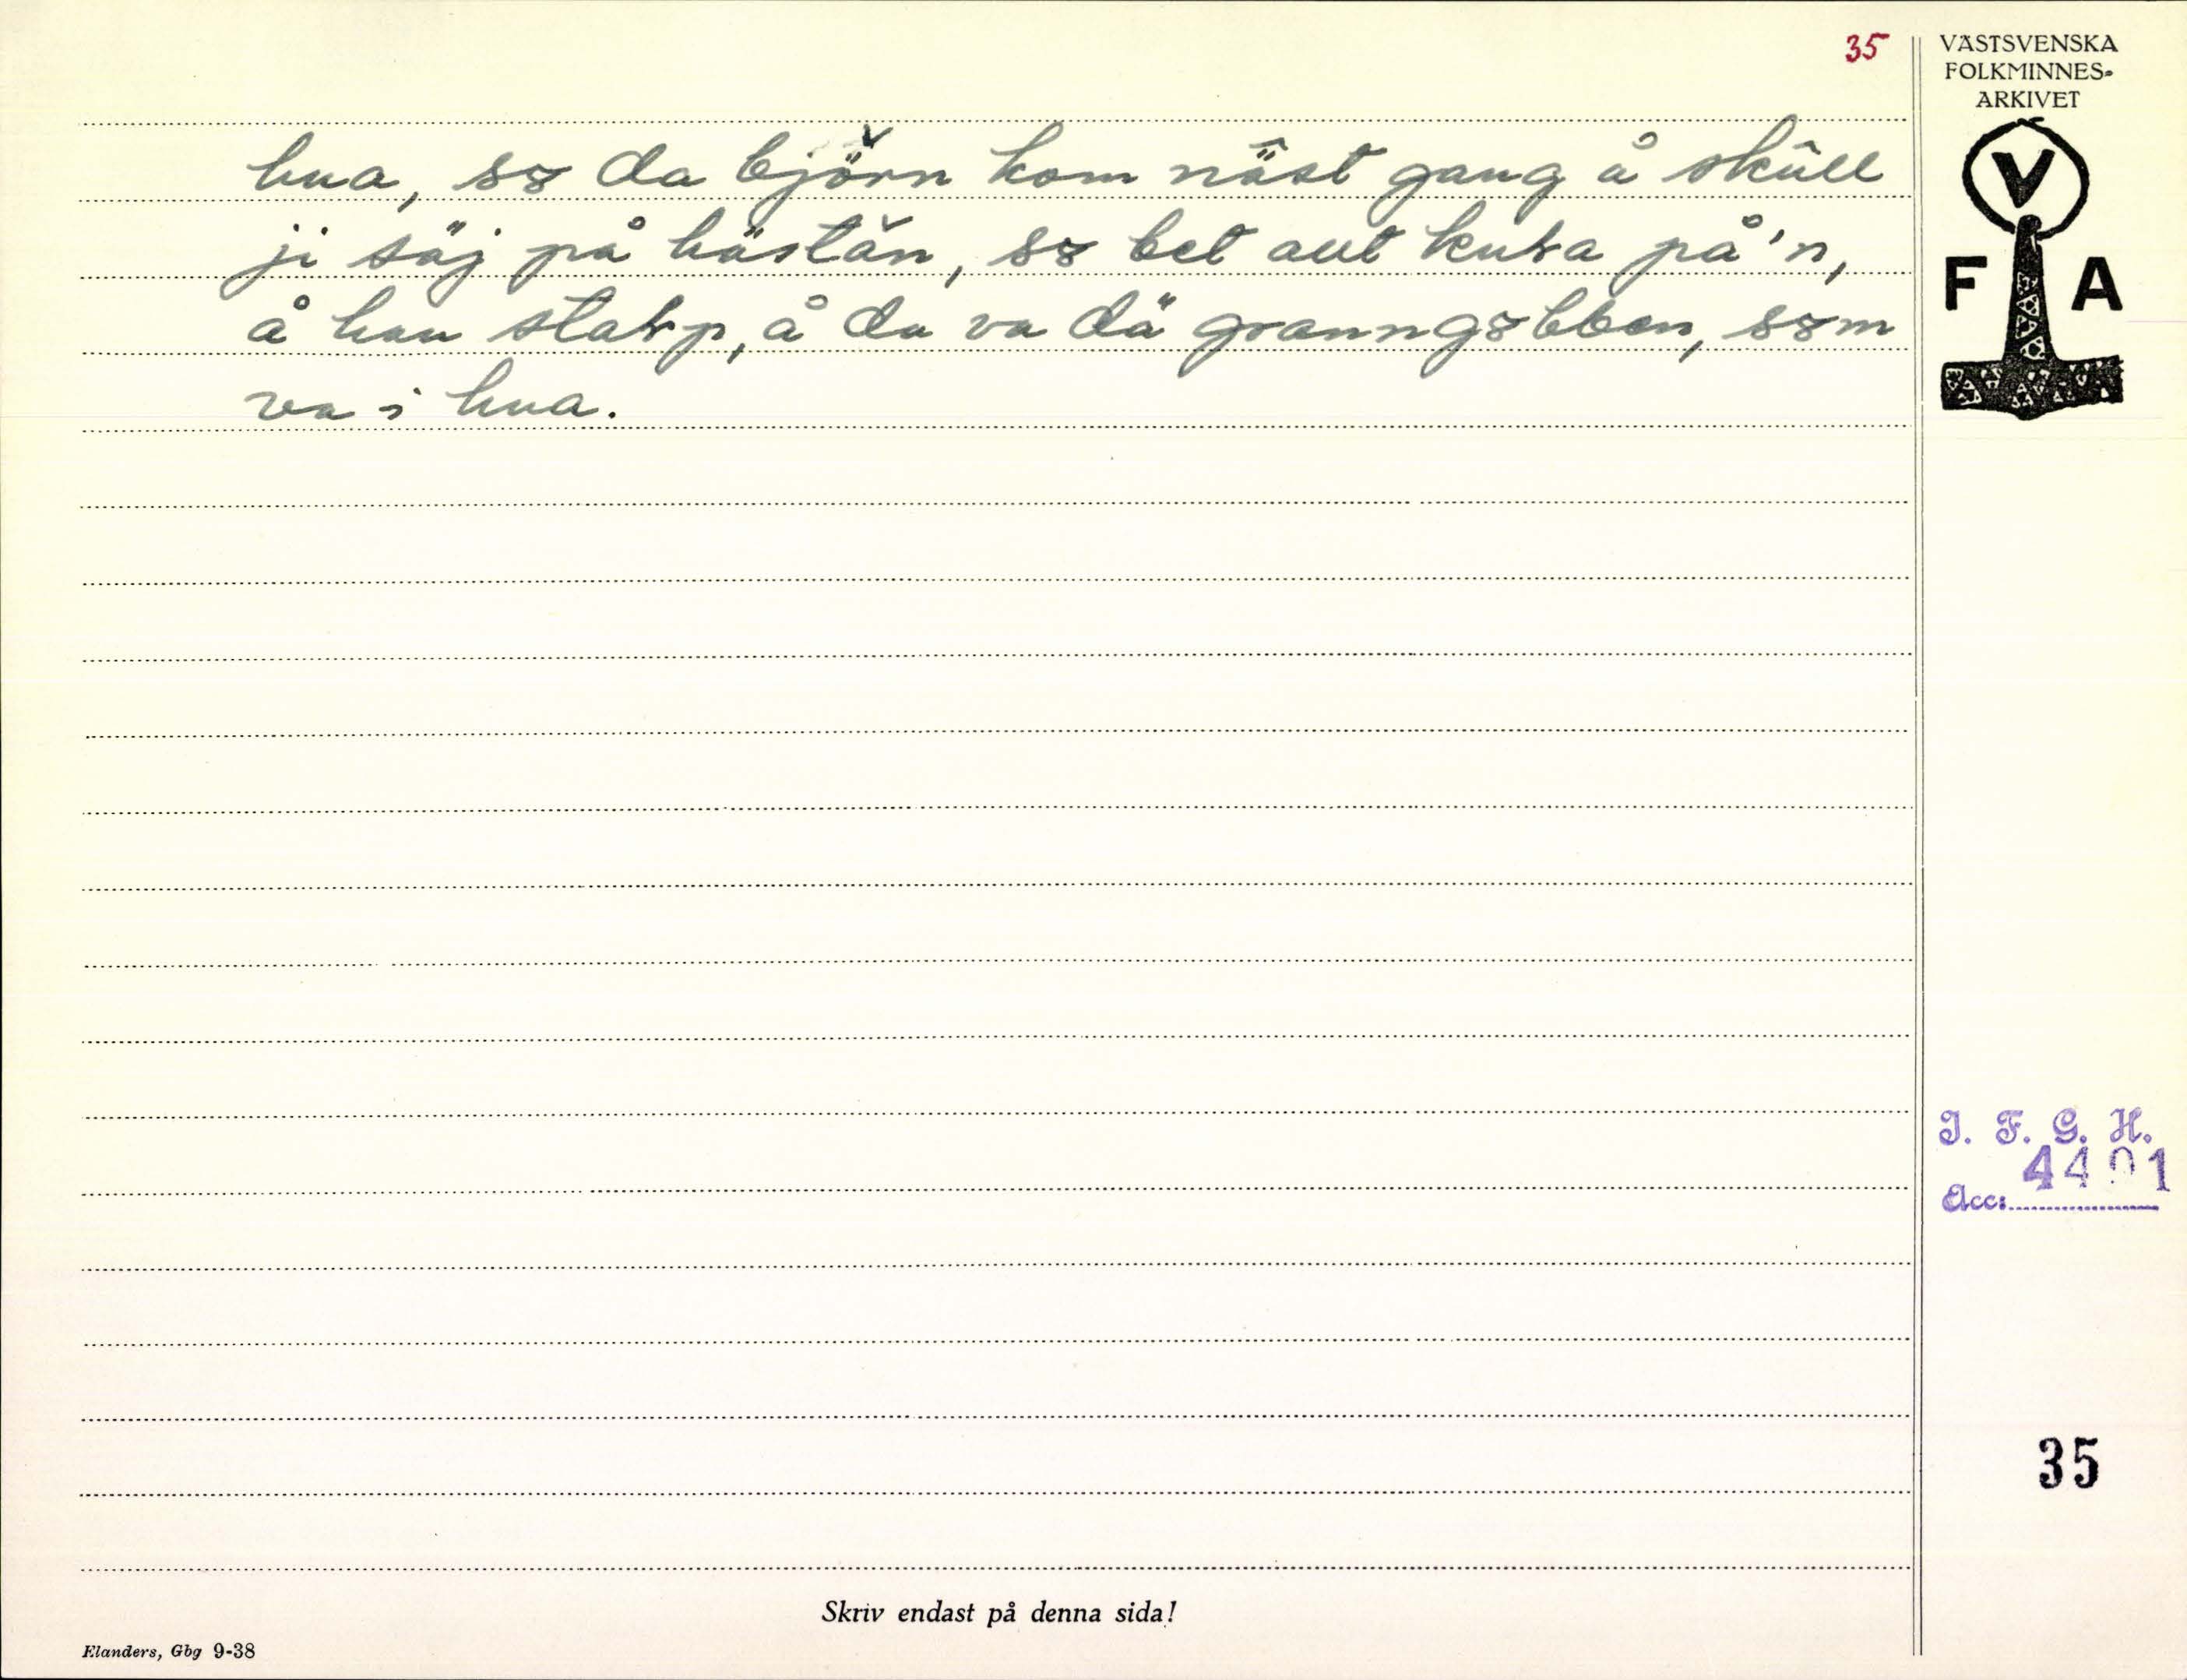 35
VÄSTSVENSKA
FOLKMINNES-
ARKIVET
V
F A
hua, sɤ da björn kom näst gang å skûll
ji säj på hästän, sɤ bet aut kusa på'n,
å han stabp, å da va dä granngɤbben, sɤm
va i hua.
I. F. G. H.
4401
Acc:
35
Skriv endast på denna sida!
Elanders, Gbg 9-38